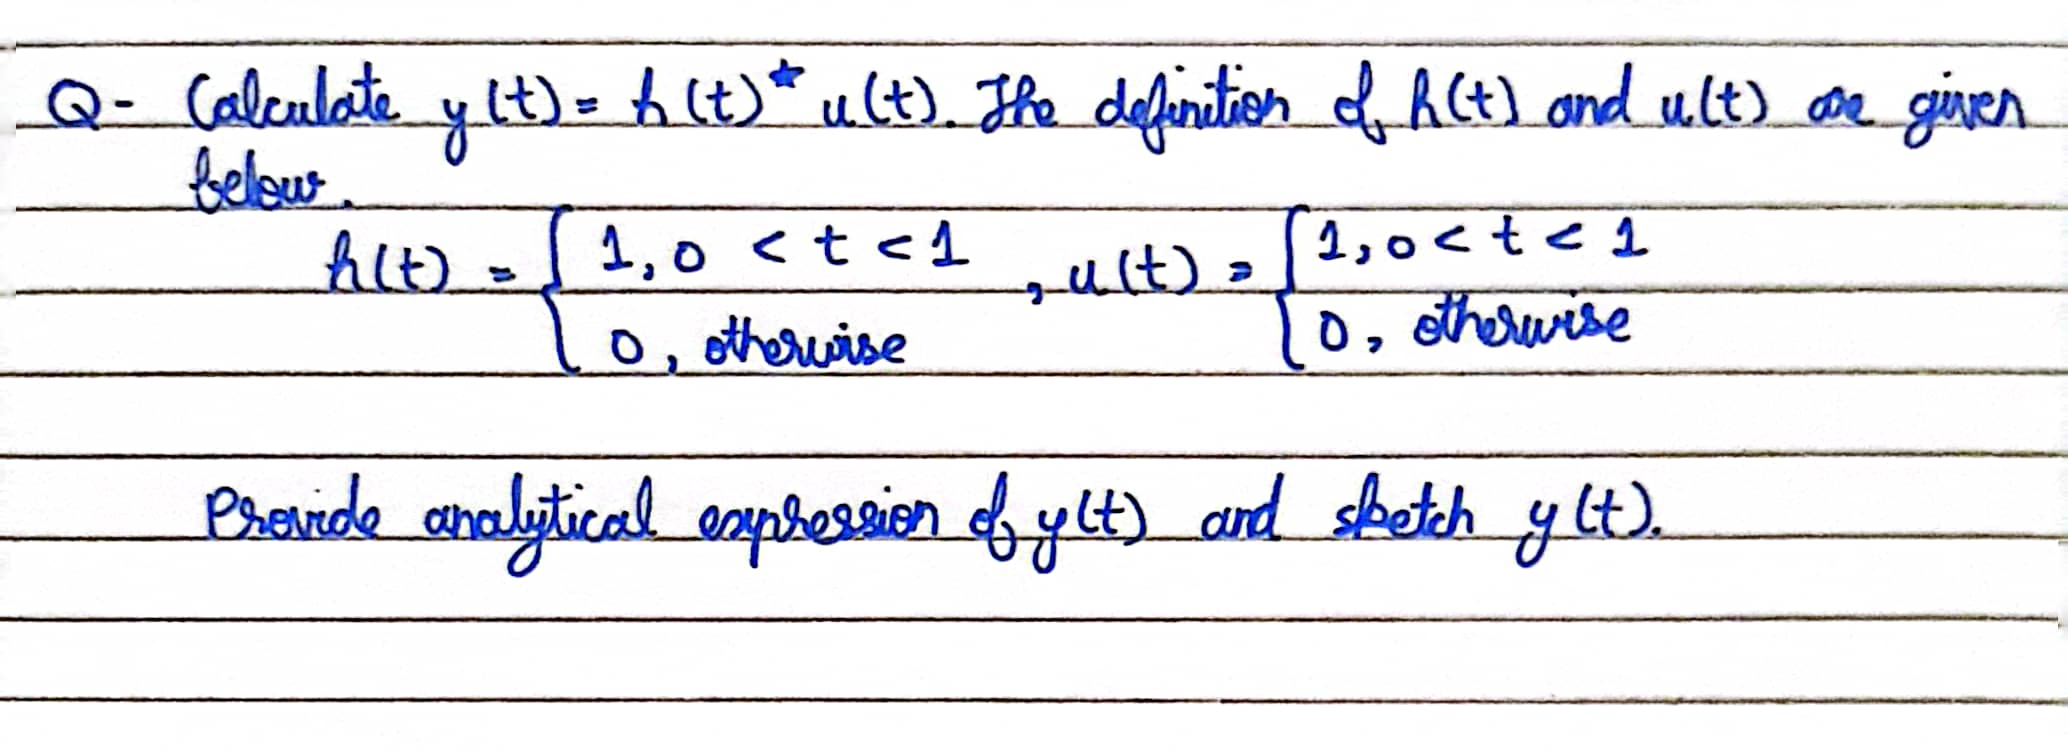 Q- Calculate y(t) = h(t)* u(t). The definition of h(t) and u(t) are given
below.
h(t) = { 1, 0 < t < 1 , u(t) = { 1, 0 < t < 1
0, otherwise 0, otherwise
Provide analytical expression of y(t) and sketch y(t).